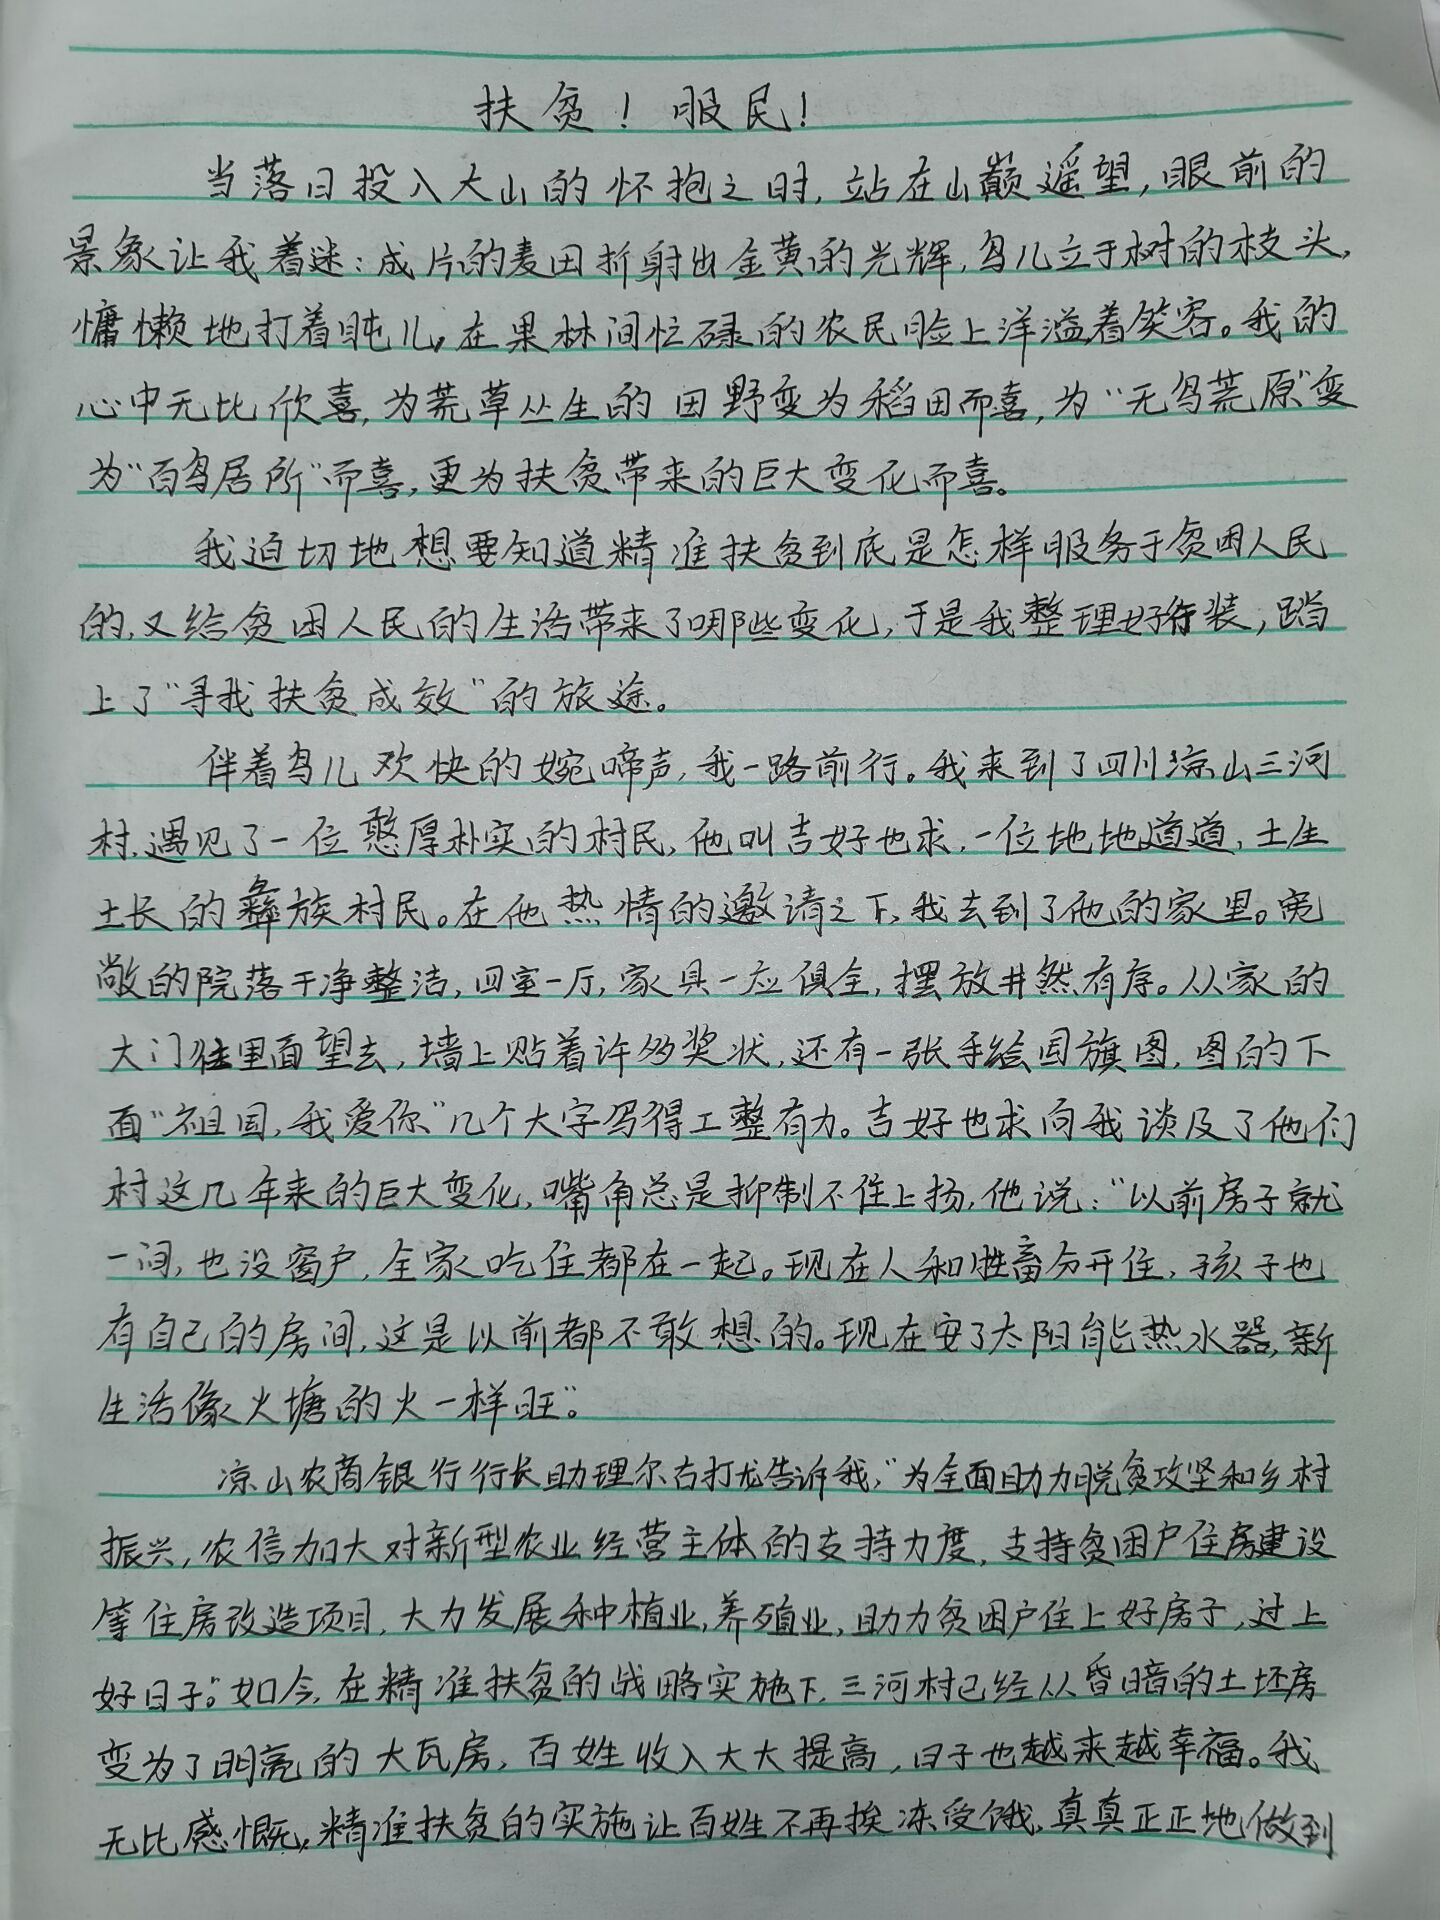 扶贫！服民！
当落日投入大山的怀抱之时，站在山巅遥望，眼前的
景象让我着迷：成片的麦田折射出金黄的光辉，鸟儿立于树的枝头，
慵懒地打着盹儿，在果林间忙碌的农民脸上洋溢着笑容。我的
心中无比欣喜，为荒草丛生的田野变为稻田而喜，为“无鸟荒原”变
为“百鸟居所”而喜，更为扶贫带来的巨大变化而喜。
我迫切地想要知道精准扶贫到底是怎样服务于贫困人民
的，又给贫困人民的生活带来了哪些变化，于是我整理好行装，踏
上了“寻找扶贫成效”的旅途。
伴着鸟儿欢快的婉啼声，我一路前行。我来到了四川凉山三河
村，遇见了一位憨厚朴实的村民，他叫吉好也求，一位地地道道，土生
土长的彝族村民。在他热情的邀请之下，我去到了他的家里。宽
敞的院落干净整洁，四室一厅，家具一应俱全，摆放井然有序。从家的
大门往里面望去，墙上贴着许多奖状，还有一张手绘国旗图，图的下
面“祖国，我爱你”几个大字写得工整有力。吉好也求向我谈及了他们
村这几年来的巨大变化，嘴角总是抑制不住上扬，他说：“以前房子就
一间，也没窗户，全家吃住都在一起。现在人和牲畜分开住，孩子也
有自己的房间，这是以前都不敢想的。现在安了太阳能热水器，新
生活像火塘的火一样旺”。
凉山农商银行行长助理尔古打龙告诉我，“为全面助力脱贫攻坚和乡村
振兴，农信加大对新型农业经营主体的支持力度，支持贫困户住房建设
等住房改造项目，大力发展种植业，养殖业，助力贫困户住上好房子，过上
好日子”。如今，在精准扶贫的战略实施下，三河村已经从昏暗的土坯房
变为了明亮的大瓦房，百姓收入大大提高，日子也越来越幸福。我
无比感慨，精准扶贫的实施让百姓不再挨冻受饿，真真正正地做到